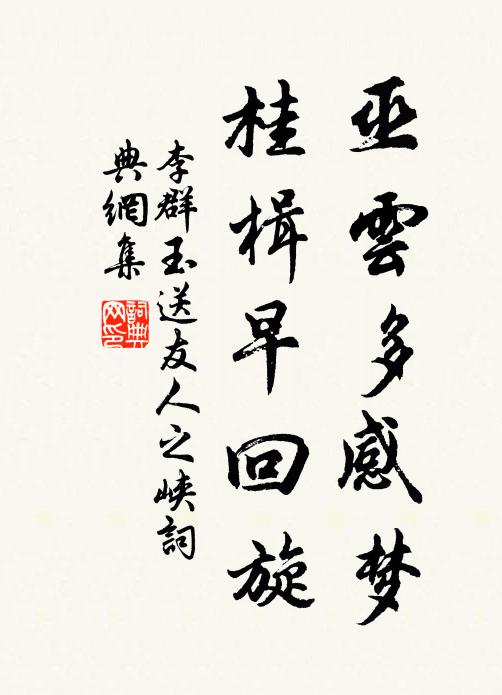 巫雲多感梦
桂楫早回旋
李群玉送友人之峡詞
典網集
詞典网印